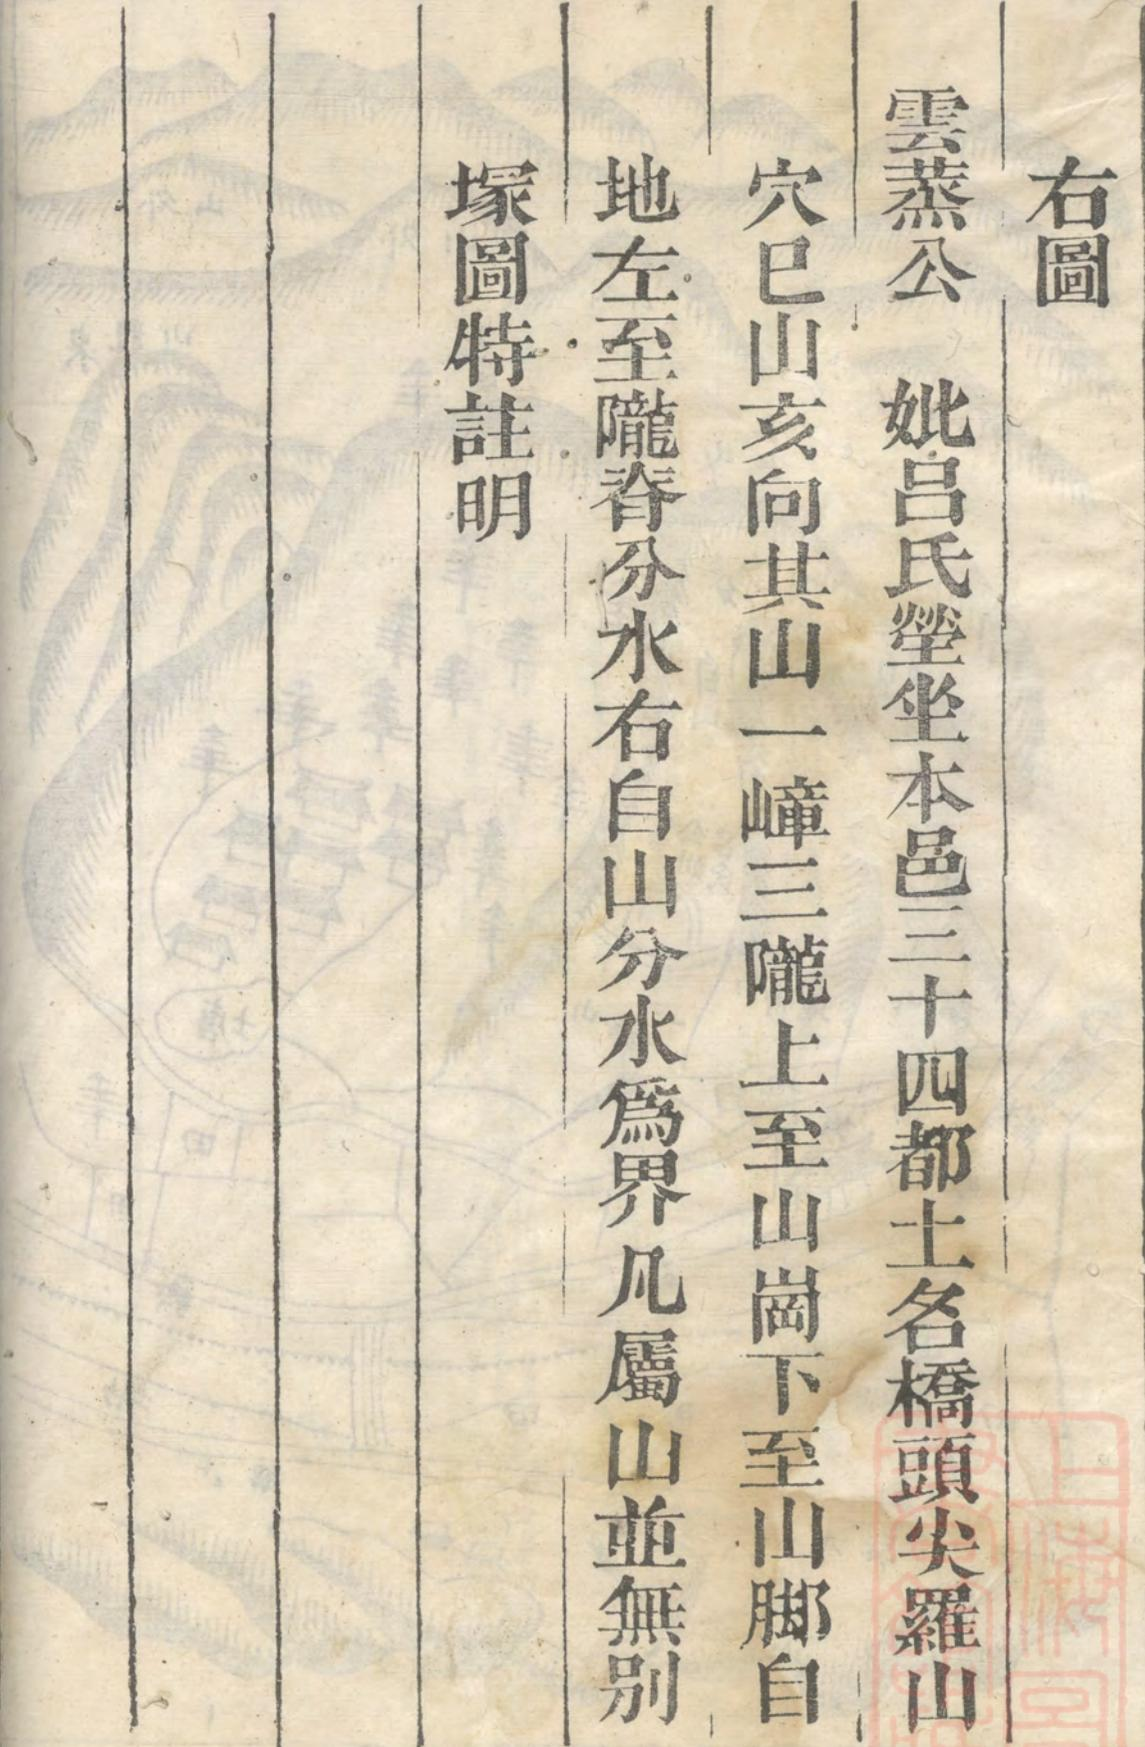 右圖
雲蒸公 妣呂氏塋坐本邑三十四都土名橋頭尖羅山
穴巳山亥向其山一嶂三隴上至山崗下至山脚自
地左至隴脊分水右自山分水爲界凡屬山並無別
塚圖特註明